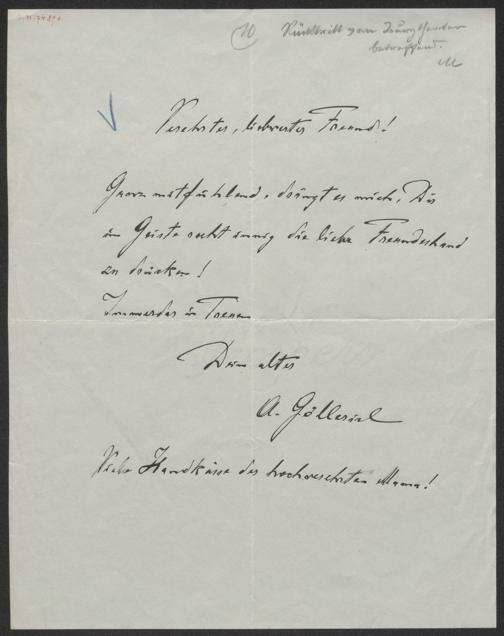 10
Rücktritt vom Burgtheater
betreffend.
M
Verehrter, liebwerter Freund!
Ganz mitfühlend, drängt es mich, Dir
im Geiste recht innig die liebe Freundeshand
zu drücken!
Immerdar in Treuen
Dein alter
A. Göllerich
Viele Handküsse der hochverehrten Mama!